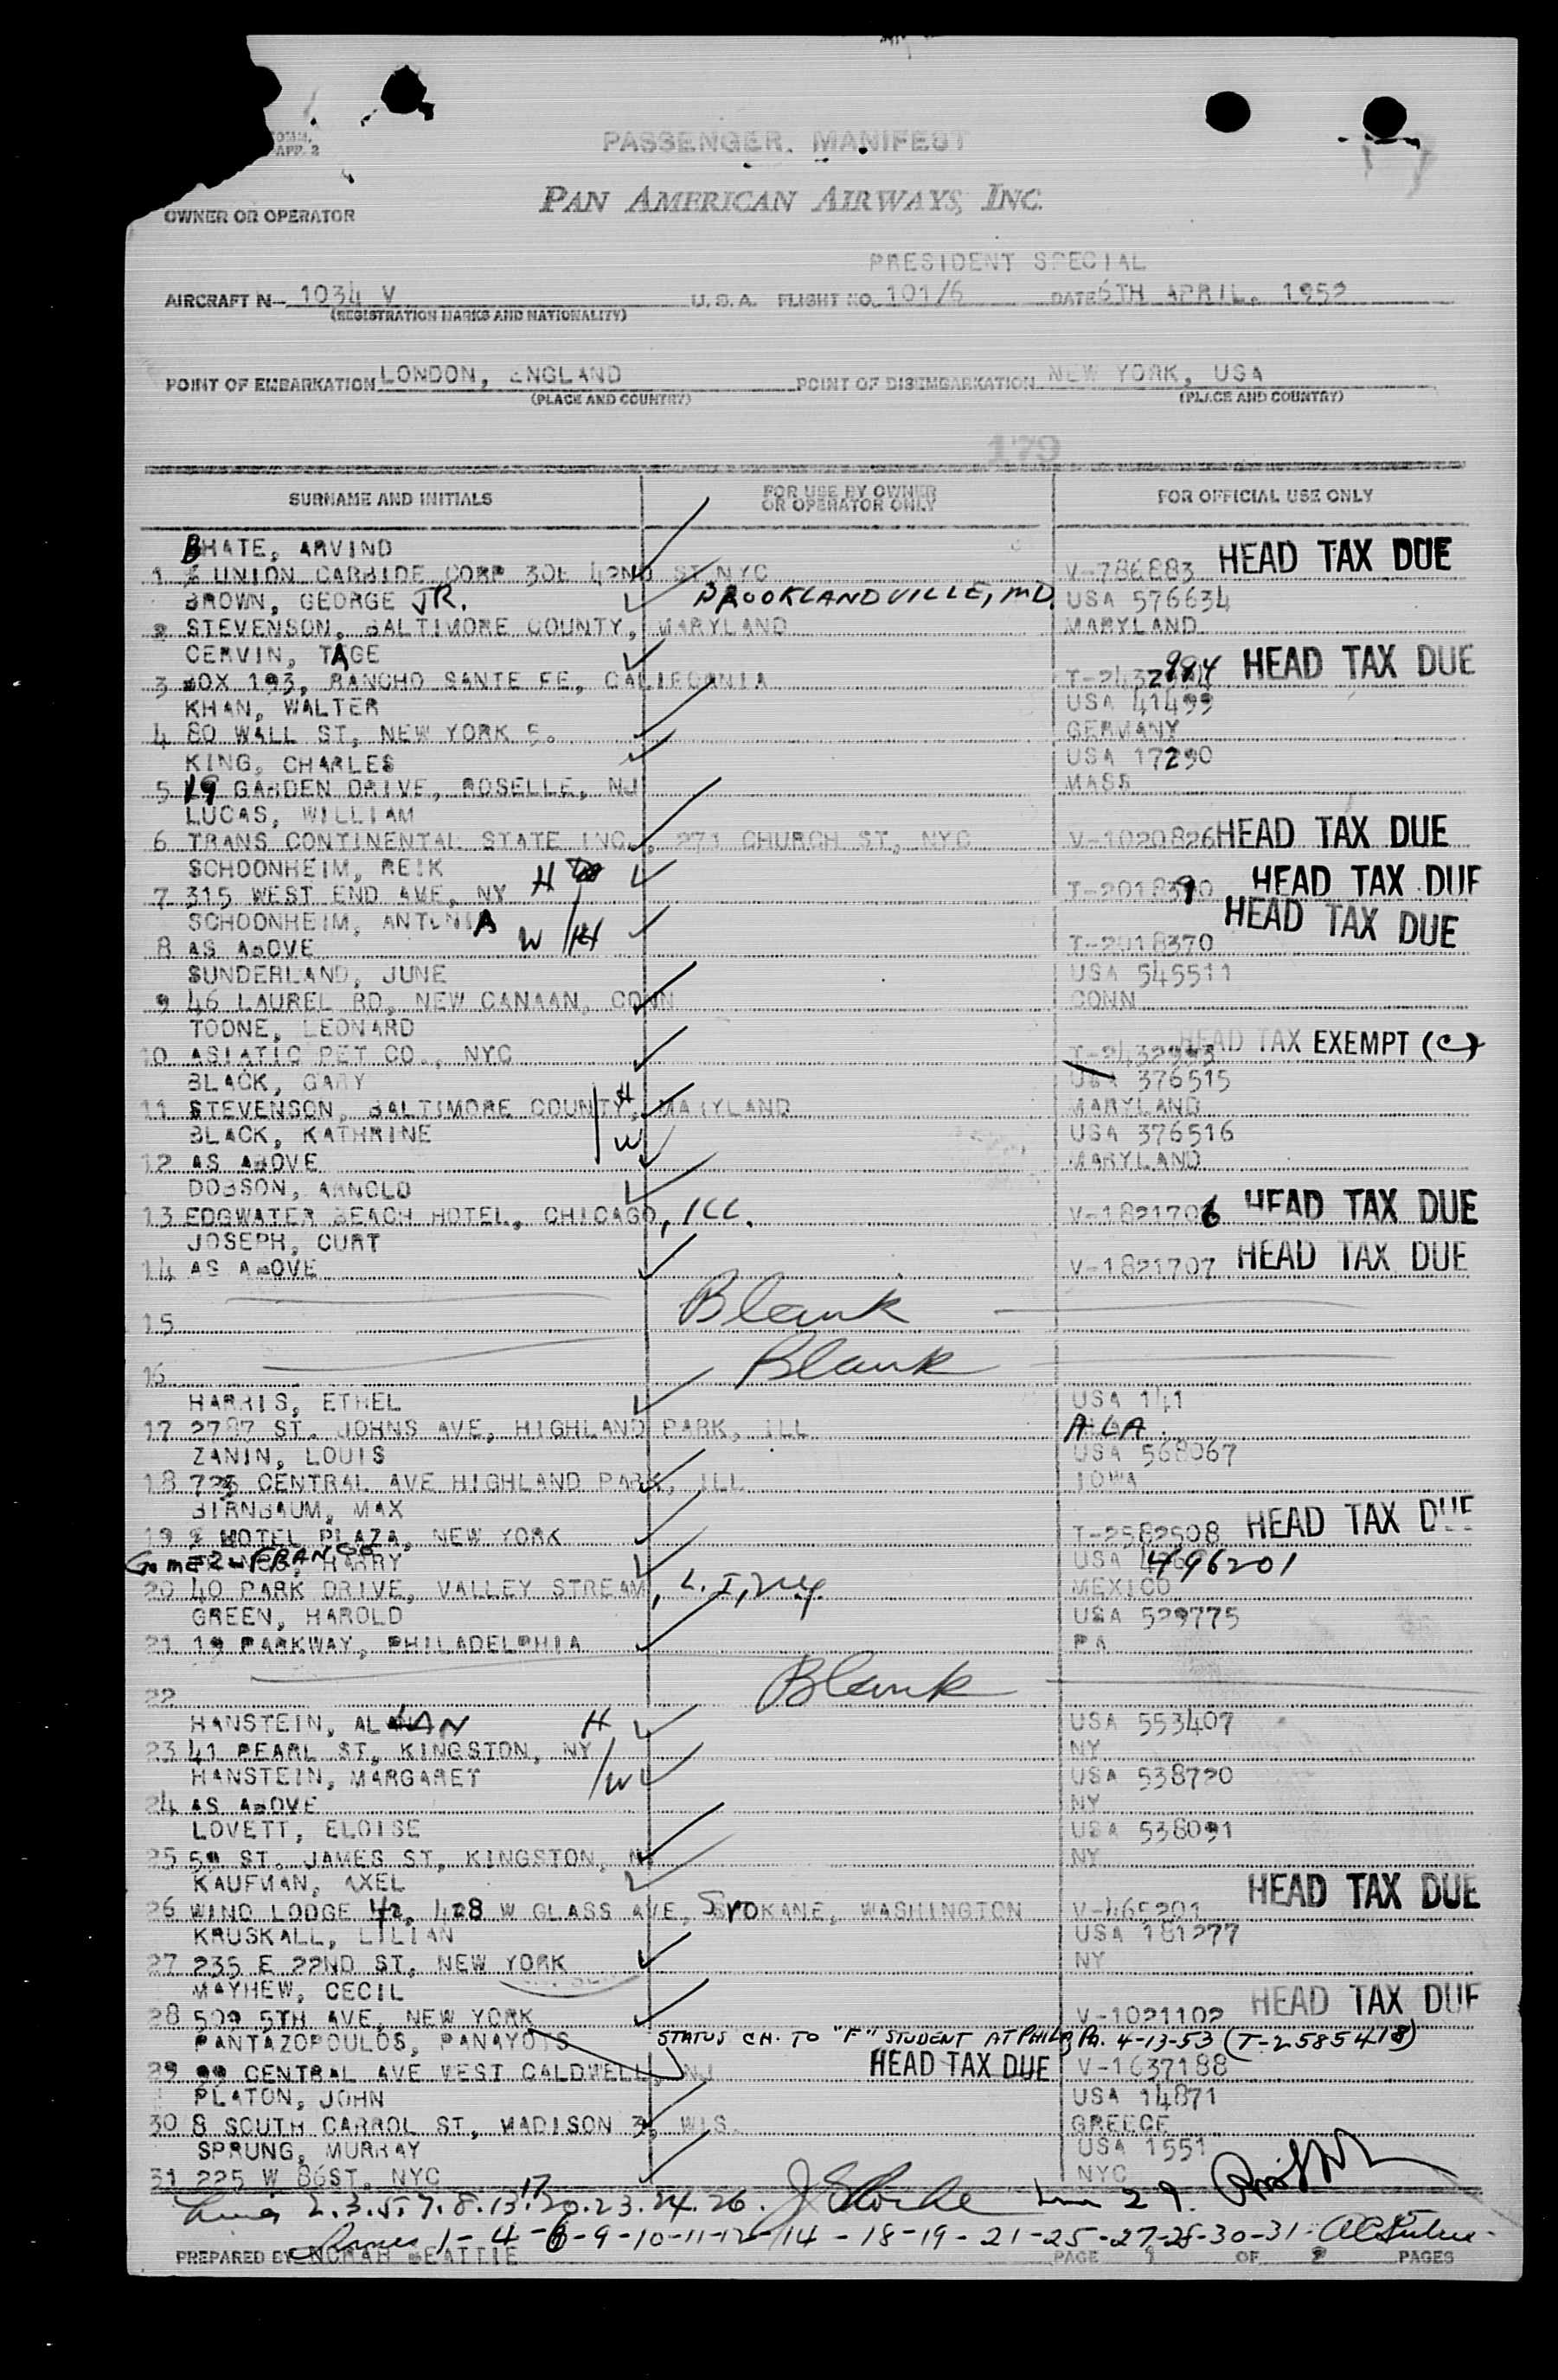 COMM.
APP. 2
PASSENGER MANIFEST
PAN AMERICAN AIRWAYS, INC.
OWNER OR OPERATOR
PRESIDENT SPECIAL
AIRCRAFT N- 1034 V U.S.A. FLIGHT NO. 101/6 DATE 6TH APRIL, 1952
(REGISTRATION MARKS AND NATIONALITY)
POINT OF EMBARKATION LONDON, ENGLAND POINT OF DISEMBARKATION NEW YORK, USA
(PLACE AND COUNTRY) (PLACE AND COUNTRY)
179
SURNAME AND INITIALS FOR USE BY OWNER OR OPERATOR ONLY FOR OFFICIAL USE ONLY
BHATE, ARVIND
1 % UNION CARBIDE CORP 30E 42ND ST NYC V-786883 HEAD TAX DUE
BROWN, GEORGE JR. BROOKLANDVILLE, MD. USA 576634
2 STEVENSON, BALTIMORE COUNTY, MARYLAND MARYLAND
CERVIN, TAGE
3 BOX 193, RANCHO SANTE FE, CALIFORNIA T-2432994 HEAD TAX DUE
KHAN, WALTER USA 41499
4 80 WALL ST, NEW YORK 5. GERMANY
KING, CHARLES USA 17290
5 19 GARDEN DRIVE, ROSELLE, NJ MASS
LUCAS, WILLIAM
6 TRANS CONTINENTAL STATE INC., 271 CHURCH ST, NYC V-1020826 HEAD TAX DUE
SCHOONHEIM, REIK H
7 315 WEST END AVE, NY HEAD TAX DUE
SCHOONHEIM, ANTONIA W
8 AS ABOVE T-2018370 HEAD TAX DUE
SUNDERLAND, JUNE USA 545511
9 46 LAUREL RD, NEW CANAAN, CONN CONN
TOONE, LEONARD
10 ASIATIC PET CO., NYC T-2432993 HEAD TAX EXEMPT (C)
BLACK, GARY H USA 376515
11 STEVENSON, BALTIMORE COUNTY, MARYLAND MARYLAND
BLACK, KATHRINE W USA 376516
12 AS ABOVE MARYLAND
DOBSON, ARNOLD
13 EDGWATER BEACH HOTEL, CHICAGO, ILL. V-1821706 HEAD TAX DUE
JOSEPH, CURT
14 AS ABOVE V-1821707 HEAD TAX DUE
15 Blank
16 Blank
HARRIS, ETHEL USA 141
17 2787 ST. JOHNS AVE, HIGHLAND PARK, ILL ALA.
ZANIN, LOUIS USA 568067
18 725 CENTRAL AVE HIGHLAND PARK, ILL IOWA
BIRNBAUM, MAX
19 % HOTEL PLAZA, NEW YORK T-2582508 HEAD TAX DUE
GOMEZ-FRANCO, HARRY USA 496201
20 40 PARK DRIVE, VALLEY STREAM, L.I, N.Y. MEXICO
GREEN, HAROLD USA 529775
21 19 PARKWAY, PHILADELPHIA PA
22 Blank
HANSTEIN, ALLAN H USA 553407
23 41 PEARL ST, KINGSTON, NY NY
HANSTEIN, MARGARET W USA 538720
24 AS ABOVE NY
LOVETT, ELOISE USA 538091
25 59 ST. JAMES ST, KINGSTON, NY NY
KAUFMAN, AXEL
26 WIND LODGE 42, 428 W GLASS AVE, SPOKANE, WASHINGTON V-465201 HEAD TAX DUE
KRUSKALL, LILIAN USA 181277
27 235 E 22ND ST, NEW YORK NY
MAYHEW, CECIL
28 509 5TH AVE, NEW YORK V-1021102 HEAD TAX DUE
PANTAZOPOULOS, PANAYOTS STATUS CH. TO "F" STUDENT AT PHILA, PA. 4-13-53 (T-2585418)
29 99 CENTRAL AVE WEST CALDWELL, NJ HEAD TAX DUE V-1637188
PLATON, JOHN USA 14871
30 8 SOUTH CARROL ST, MADISON 3, WIS. GREECE
SPRUNG, MURRAY USA 1551
31 225 W 86ST, NYC NYC
Lines 2.3.5.7.8.13.17.20.23.24.26. Line 29.
Lines 1-4-6-9-10-11-12-14-18-19-21-25-27-28-30-31-
PREPARED BY NORAH BEATTIE PAGE 1 OF 2 PAGES